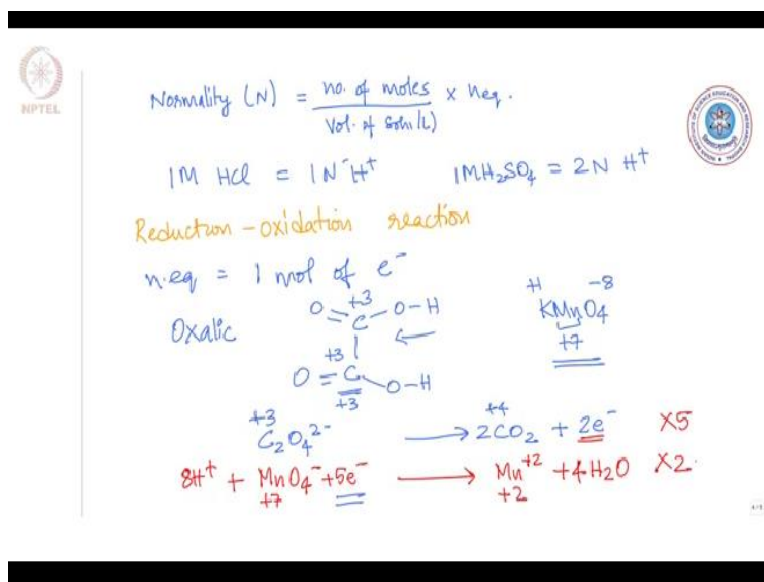 NPTEL
Normality (N) = no. of moles / Vol. of soln (L) × neq.
1M HCl = 1N H⁺ 1M H₂SO₄ = 2N H⁺
Reduction-oxidation reaction
n.eq = 1 mol of e⁻
+3 H -8
O = C - O-H KMnO₄
Oxalic +7
+3
O = C - O-H
+3
+3 +4
C₂O₄²⁻ → 2CO₂ + 2e⁻ ×5
8H⁺ + MnO₄⁻ + 5e⁻ → Mn⁺² + 4H₂O ×2
+7 +2